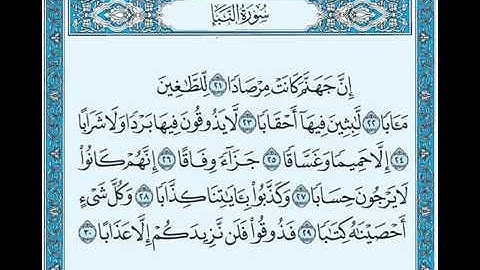 سُورَةُ النَّبَإِ
إِنَّ جَهَنَّمَ كَانَتْ مِرْصَادًا ٢١ لِّلطَّٰغِينَ
مَـَٔابًا ٢٢ لَّٰبِثِينَ فِيهَآ أَحْقَابًا ٢٣ لَّا يَذُوقُونَ فِيهَا بَرْدًا وَلَا شَرَابًا
٢٤ إِلَّا حَمِيمًا وَغَسَّاقًا ٢٥ جَزَآءً وِفَاقًا ٢٦ إِنَّهُمْ كَانُوا۟
لَا يَرْجُونَ حِسَابًا ٢٧ وَكَذَّبُوا۟ بِـَٔايَٰتِنَا كِذَّابًا ٢٨ وَكُلَّ شَىْءٍ
أَحْصَيْنَٰهُ كِتَٰبًا ٢٩ فَذُوقُوا۟ فَلَن نَّزِيدَكُمْ إِلَّا عَذَابًا ٣٠